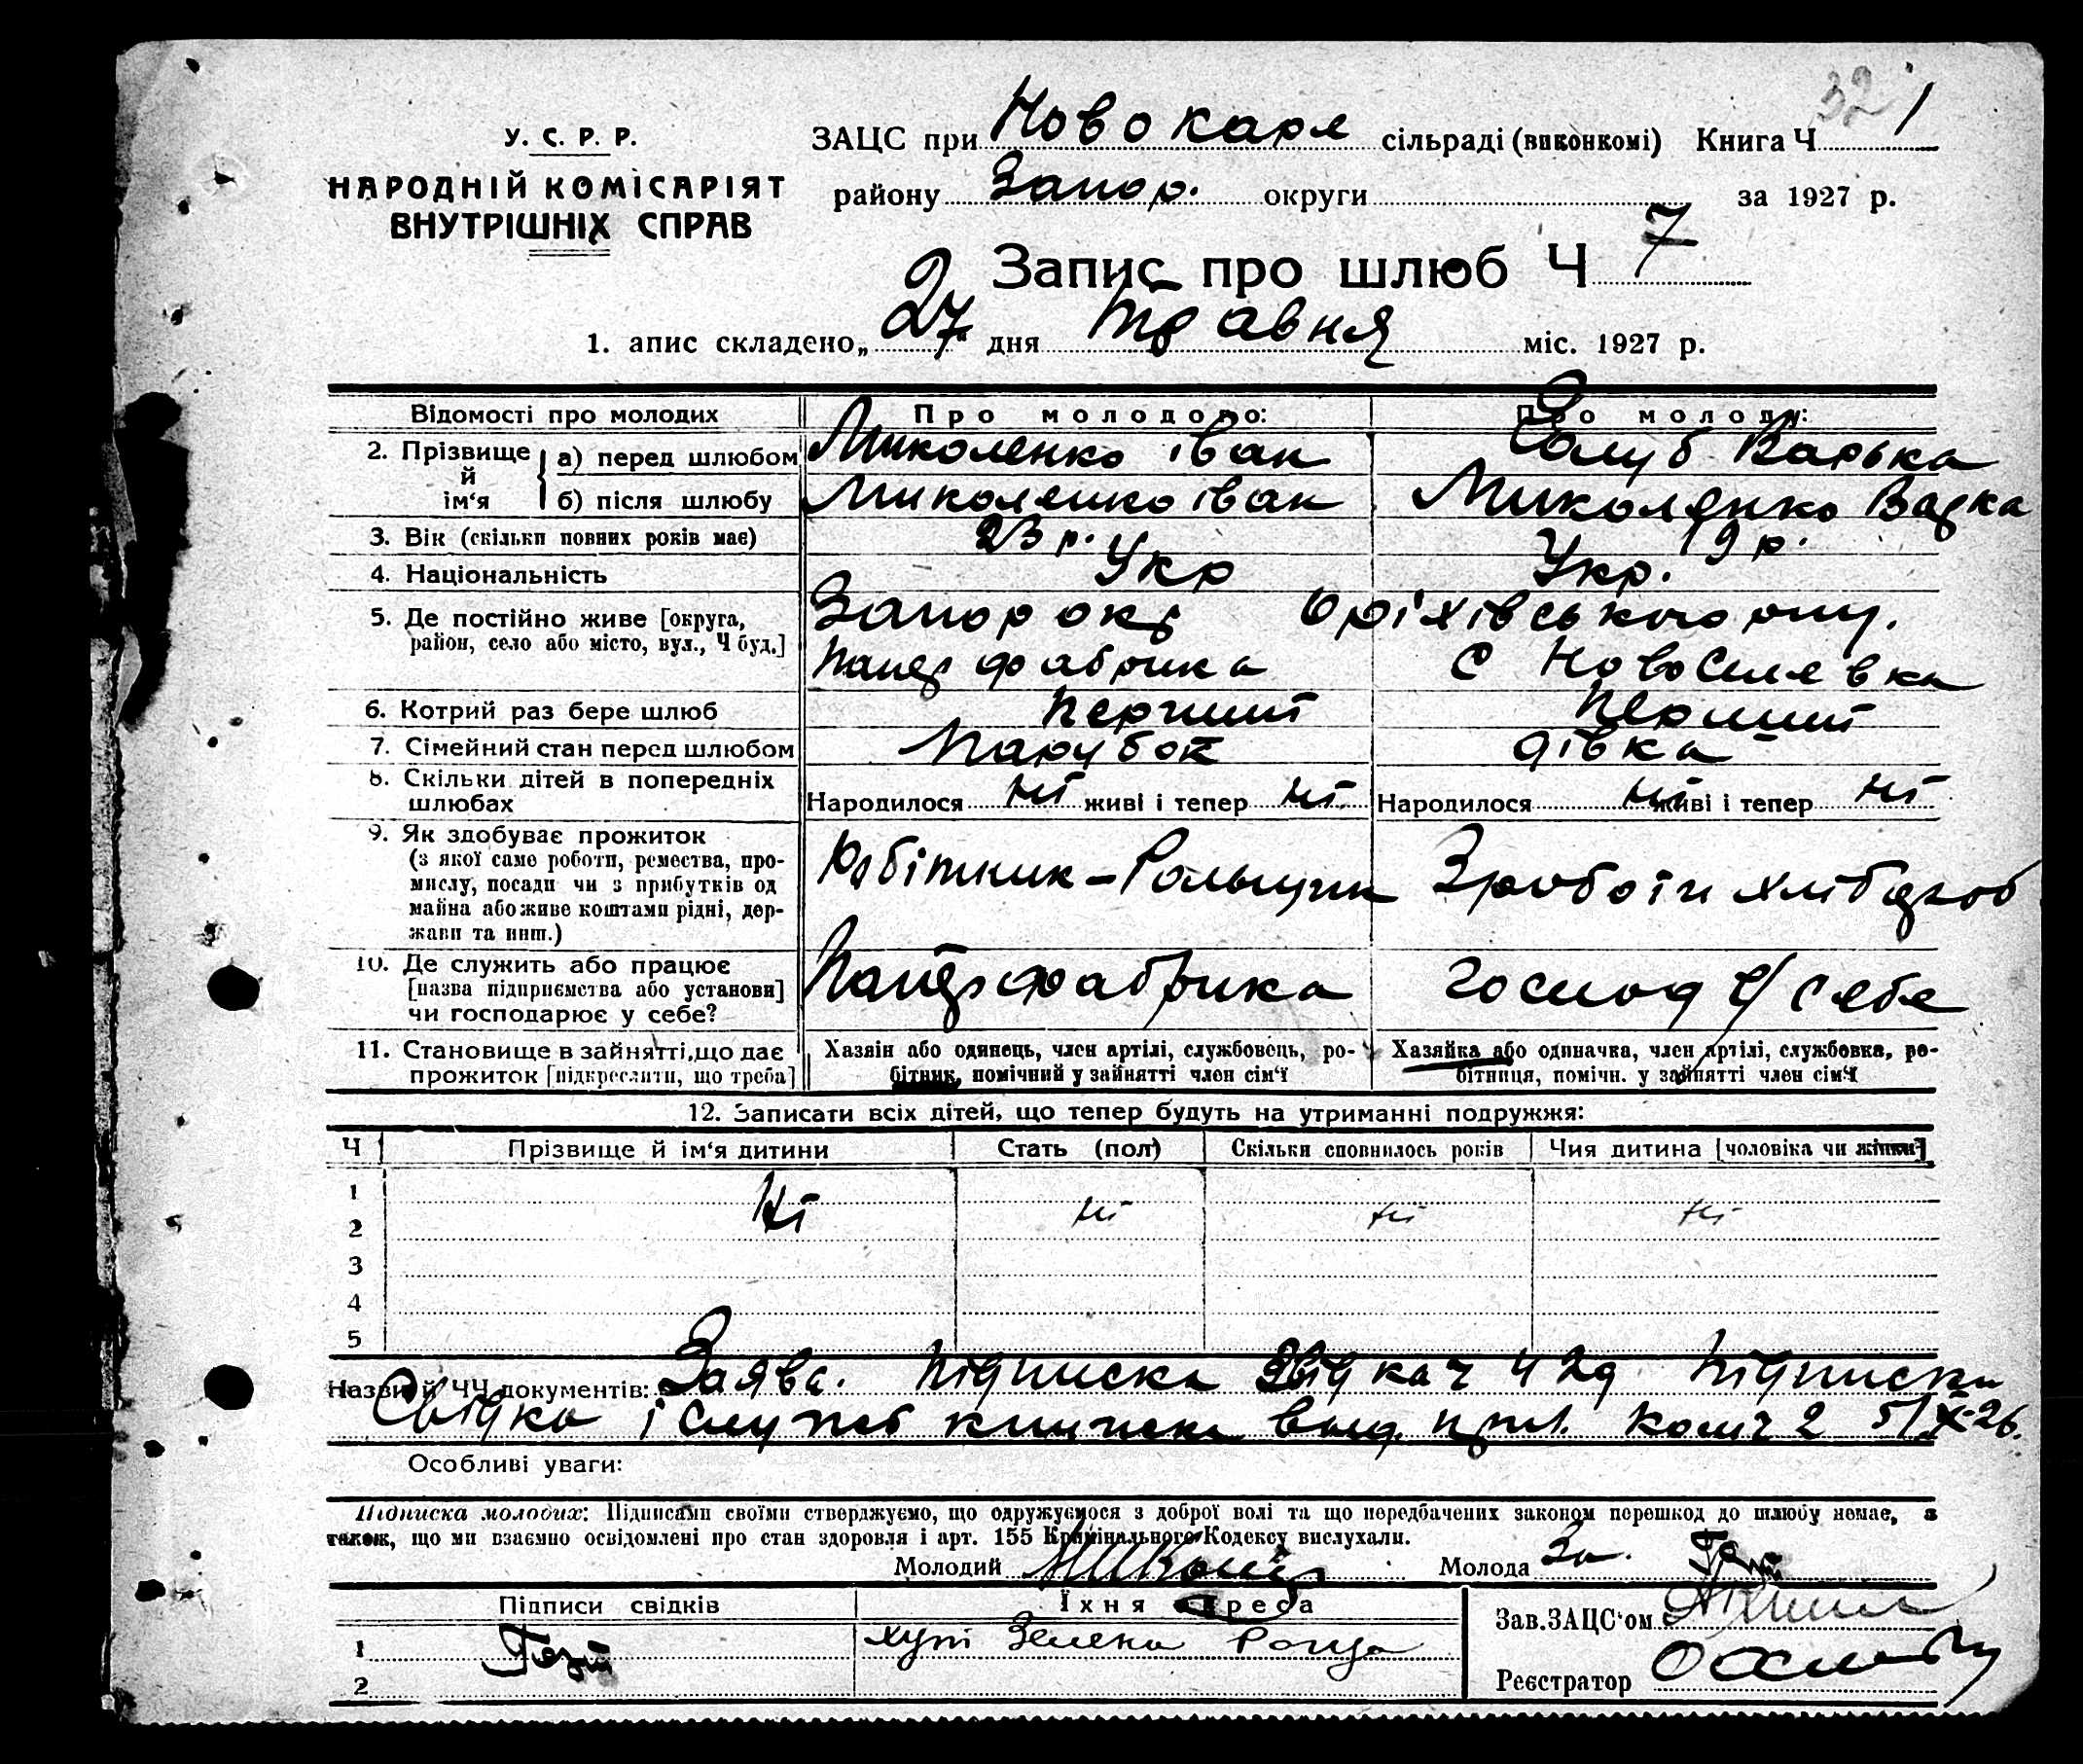 32 1
У. С. Р. Р.
НАРОДНІЙ КОМІСАРІЯТ
ВНУТРІШНІХ СПРАВ
ЗАЦС при Новокаря сільраді (виконкомі) Книга Ч
району Запор. округи за 1927 р.
Запис про шлюб Ч 7
1. апис складено „27“ дня травня міс. 1927 р.
Відомості про молодих Про молодого: Про молоду:
2. Прізвище й ім‘я а) перед шлюбом Миколенко іван Голуб Варька
б) після шлюбу Миколенко іван Миколенко Варка
3. Вік (скільки повних років має) 23 р. 19 р.
4. Національність Укр Укр.
5. Де постійно живе [округа, Запор окр Оріхівського
район, село або місто, вул., Ч буд.] папер фабрика с Новоселевка
6. Котрий раз бере шлюб перший перший
7. Сімейний стан перед шлюбом парубок дівка
8. Скільки дітей в попередніх
шлюбах Народилося ні живі і тепер ні Народилося ні живі і тепер ні
9. Як здобуває прожиток
(з якої саме роботи, ремества, про-
мислу, посади чи з прибутків од
майна або живе коштами рідні, дер-
жави та инш.)
Робітник - Рольщик
З работи хлібороб
10. Де служить або працює
[назва підприємства або установи]
чи господарює у себе?
Папер фабрика
господ у себе
11. Становище в зайнятті, що дає
прожиток [підкреслити, що треба]
Хазяін або одинець, член артілі, службовець, ро-
бітник, помічний у зайнятті член сім‘ї
Хазяйка або одиначка, член артілі, службовка, ро-
бітниця, помічн. у зайнятті член сім‘ї
12. Записати всіх дітей, що тепер будуть на утриманні подружжя:
Ч Прізвище й ім‘я дитини Стать (пол) Скільки сповнилось років Чия дитина [чоловіка чи жінки]
1
ні ні ні ні
2
3
4
5
Назви й ЧЧ документів: Заява. Підписка Свідка ч 429 Підписка
Свідка і служб книжка вид. 5/X-26.
Особливі уваги:
Підписка молодих: Підписами своїми стверджуємо, що одружуємося з доброї волі та що передбачених законом перешкод до шлюбу немає, а
також, що ми взаємно освідомлені про стан здоровля і арт. 155 Кримінального Кодексу вислухали.
Молодий Молода За.
Підписи свідків Їхня адреса
1 хут Зелена Роща
2
Зав. ЗАЦС‘ом
Реєстратор